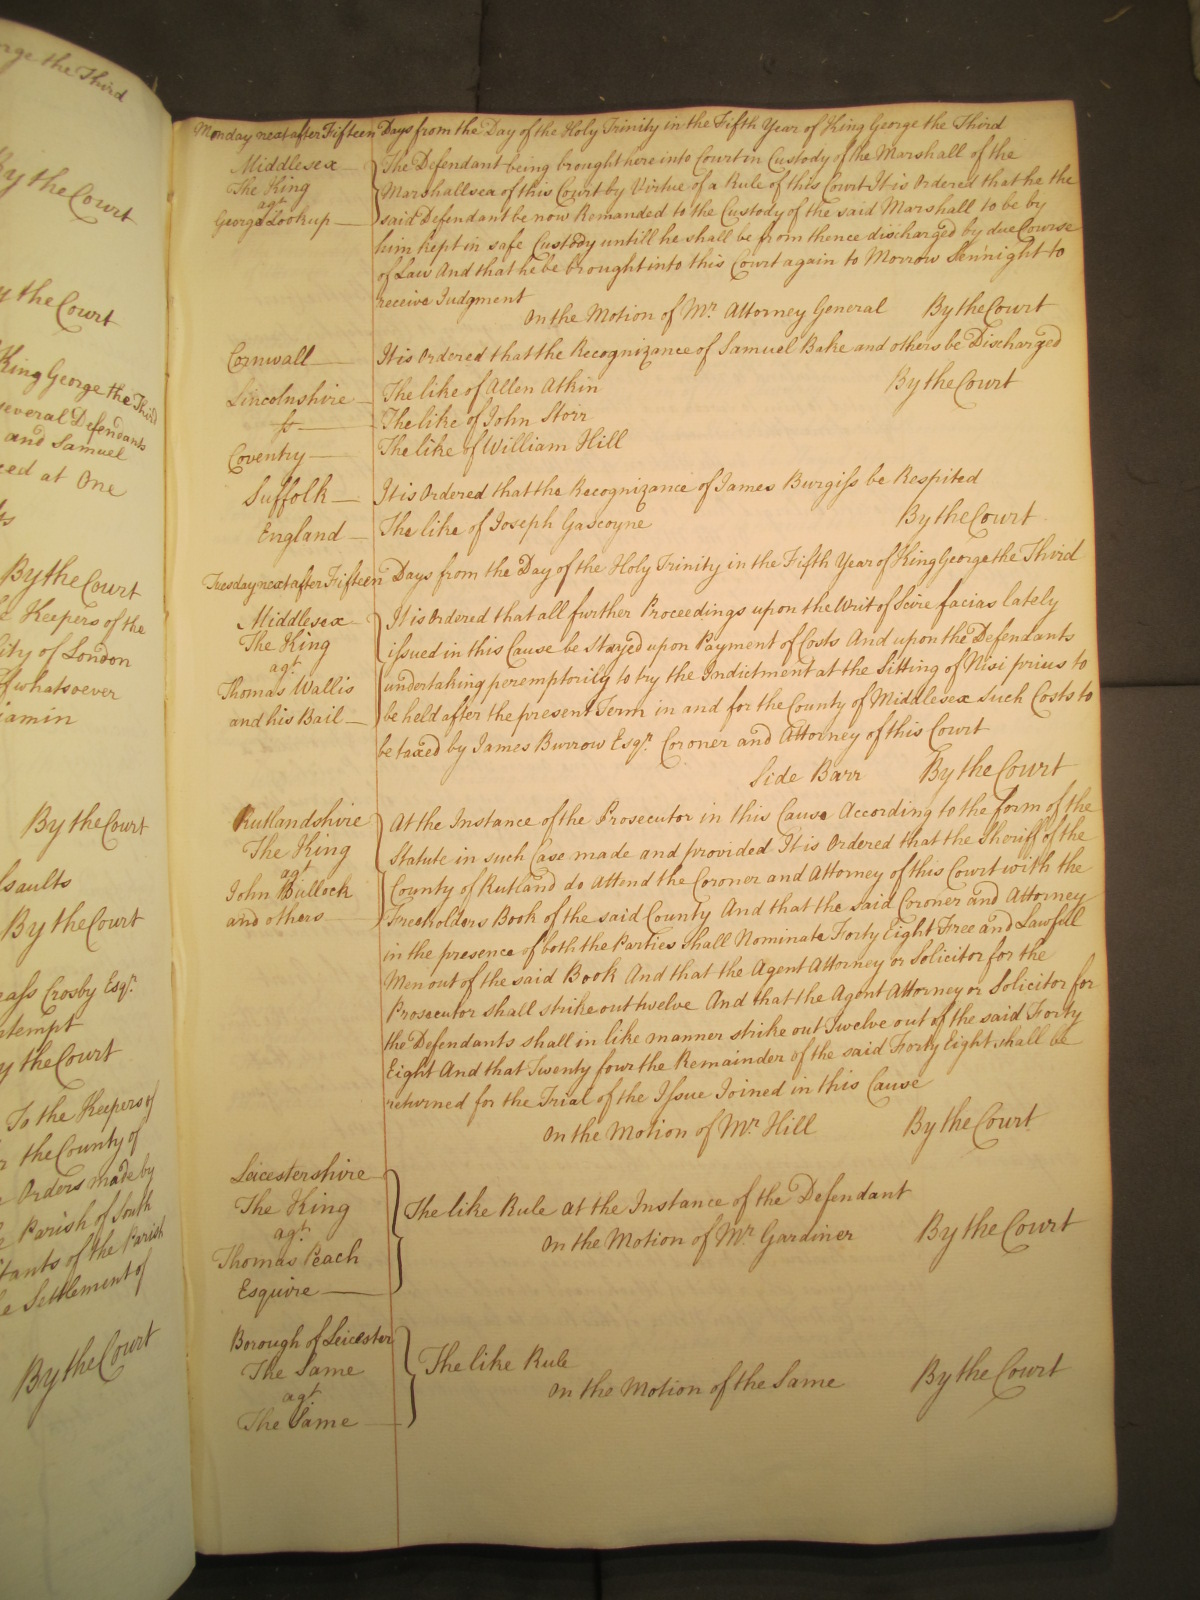 orge the Third
By the Court
y the Court
King George the Third
several Defendants
and Samuel
ed at One
By the Court
Keepers of the
ity of London
whatsoever
jamin
By the Court
ssaults
By the Court
rass Crosby Esqr.
ntempt
y the Court
To the Keepers of
the County of
Orders made by
Parish of South
itants of the Parish
e Settlement of
By the Court
Monday next after Fifteen Days from the Day of the Holy Trinity in the Fifth Year of King George the Third
Middlesex
The King
agt
George Lookup
The Defendant being brought here into Court in Custody of the Marshall of the
Marshallsea of this Court by Virtue of a Rule of this Court It is Ordered that he the
said Defendant be now Remanded to the Custody of the said Marshall to be by
him kept in safe Custody untill he shall be from thence discharged by due Course
of Law And that he be brought into this Court again to Morrow Sennight to
receive Judgment
On the Motion of Mr. Attorney General By the Court
Cornwall It is Ordered that the Recognizance of Samuel Bake and others be Discharged
By the Court
Lincolnshire The like of Allen Atkin
So The like of John Storr
Coventry The like of William Hill
Suffolk It is Ordered that the Recognizance of James Burgiss be Respited
England The like of Joseph Gascoyne By the Court
Tuesday next after Fifteen Days from the Day of the Holy Trinity in the Fifth Year of King George the Third
Middlesex
The King
agt
Thomas Wallis
and his Bail
It is Ordered that all further Proceedings upon the Writ of Scire facias lately
issued in this Cause be Stayed upon Payment of Costs And upon the Defendants
undertaking peremptorily to try the Indictment at the Sitting of Nisi prius to
be held after the present Term in and for the County of Middlesex such Costs to
be taxed by James Burrow Esqr. Coroner and Attorney of this Court
Side Barr By the Court
Rutlandshire
The King
agt
John Bullock
and others
At the Instance of the Prosecutor in this Cause According to the form of the
Statute in such Case made and provided It is Ordered that the Sheriff of the
County of Rutland do Attend the Coroner and Attorney of this Court with the
Freeholders Book of the said County And that the said Coroner and Attorney
in the presence of both the Parties shall Nominate Forty Eight Free and Lawfull
Men out of the said Book And that the Agent Attorney or Solicitor for the
Prosecutor shall strike out twelve And that the Agent Attorney or Solicitor for
the Defendants shall in like manner strike out Twelve out of the said Forty
Eight And that Twenty four the Remainder of the said Forty Eight shall be
returned for the Trial of the Issue Joined in this Cause
On the Motion of Mr. Hill By the Court
Leicestershire
The King
agt.
Thomas Peach
Esquire
The like Rule at the Instance of the Defendant
On the Motion of Mr. Gardiner By the Court
Borough of Leicester
The Same
agt
The Same
The like Rule
On the Motion of the Same By the Court